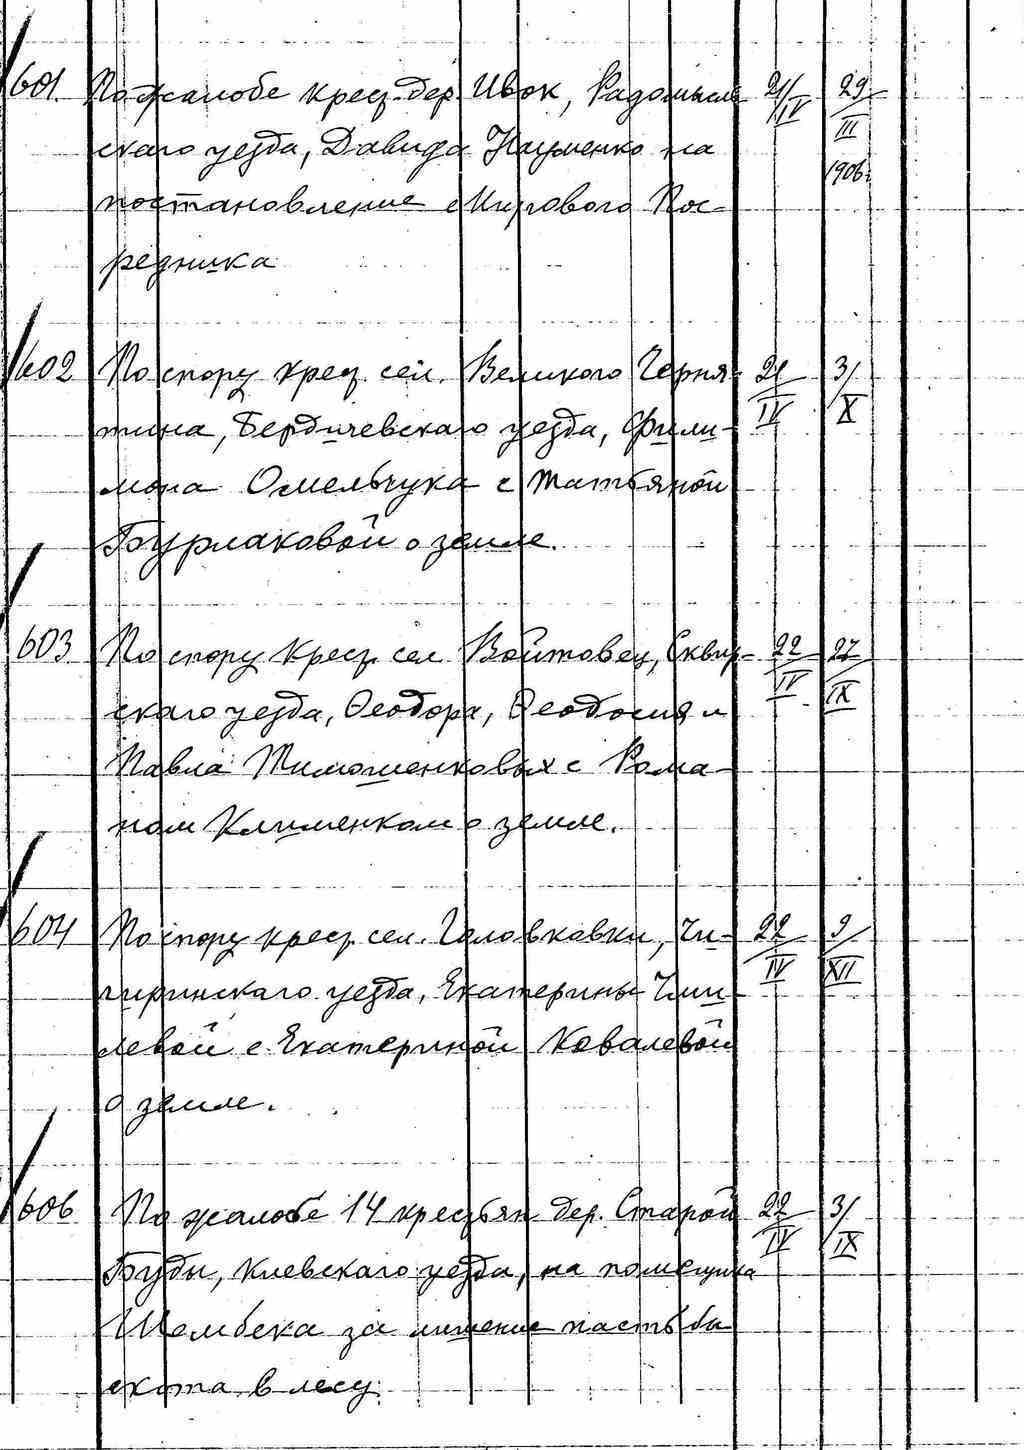 601 По жалобе крес. дер. Ивок, Радомысль- 21/IV 29/III
скаго уезда, Давида Науменко на 1906.
постановление Мирового Пос-
редника
602 По спору крес. сел. Великого Черня- 21/IV 3/X
тина, Бердичевскаго уезда, Фили-
мона Омельчука с Татьяной
Бурлаковой о земле.
603 По спору крес. сел. Войтовец, Сквир- 22/IV 27/IX
скаго уезда, Феодора, Феодосия и
Павла Тимошенковых с Рома-
ном Клименком о земле.
604 По спору крес. сел. Головковки, Чи- 22/IV 9/XII
гиринскаго уезда, Екатерины
левой с Екатериной Ковалевой
о земле.
606 По жалобе 14 крестьян дер. Старой 22/IV 3/IX
Буды, Киевскаго уезда, на помещика
Шембека за лишение пастьбы
скота в лесу.